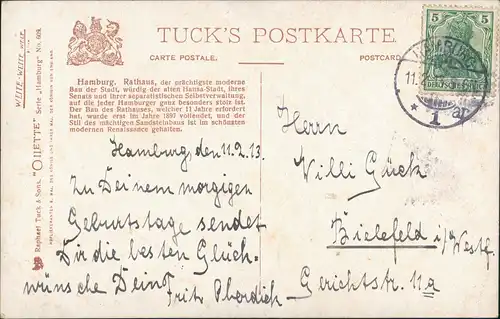 TUCK'S POSTKARTE
CARTE POSTALE.
POSTCARD
Hamburg. Rathaus, der prächtigste moderne
Bau der Stadt, würdig der alten Hansa-Stadt, ihres
Senats und ihrer separatistischen Selbstverwaltung,
auf die jeder Hamburger ganz besonders stolz ist.
Der Bau des Rathauses, welcher 11 Jahre erfordert
hat, wurde erst im Jahre 1897 vollendet, und der
Stil des mächtigen Sandsteinbaus ist im schönsten
modernen Renaissance gehalten.
Hamburg, den 11.2.13.
Zu Deinem morgigen
Geburtstage sendet
Dir die besten Glück-
wünsche Dein
Fritz
Herrn
Willi Gück
Bielefeld i/Westf.
Gerichtstr. 11a
Raphael Tuck & Sons, "OILETTE" Serie „Hamburg" No.
5 5
DEUTSCHES REICH
HAMBURG
11.
* 1